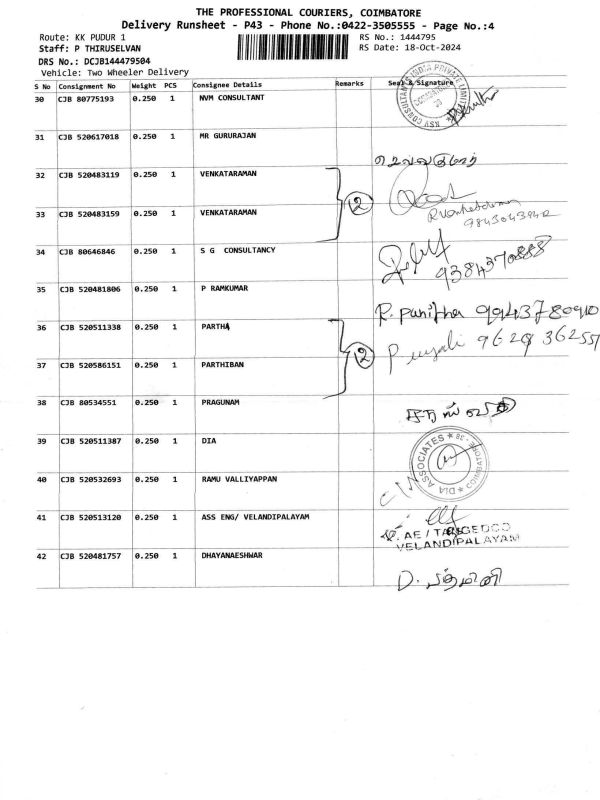 THE PROFESSIONAL COURIERS, COIMBATORE
Delivery Runsheet - P43 - Phone No.:0422-3505555 - Page No.:4
Route: KK PUDUR 1 RS No.: 1444795
Staff: P THIRUSELVAN RS Date: 18-Oct-2024
DRS No.: DCJB144479504
Vehicle: Two Wheeler Delivery
S No Consignment No Weight PCS Consignee Details Remarks Seal & Signature
30 CJB 80775193 0.250 1 NVM CONSULTANT
31 CJB 520617018 0.250 1 MR GURURAJAN
32 CJB 520483119 0.250 1 VENKATARAMAN
②
33 CJB 520483159 0.250 1 VENKATARAMAN
34 CJB 80646846 0.250 1 S G CONSULTANCY
35 CJB 520481806 0.250 1 P RAMKUMAR
R. Punitha
36 CJB 520511338 0.250 1 PARTHA
②
37 CJB 520586151 0.250 1 PARTHIBAN
38 CJB 80534551 0.250 1 PRAGUNAM
39 CJB 520511387 0.250 1 DIA
DIA ASSOCIATES * COIMBATORE - 38 *
40 CJB 520532693 0.250 1 RAMU VALLIYAPPAN
41 CJB 520513120 0.250 1 ASS ENG/ VELANDIPALAYAM
AE / TANGEDCO
VELANDIPALAYAM
42 CJB 520481757 0.250 1 DHAYANAESHWAR
D. பத்மினி